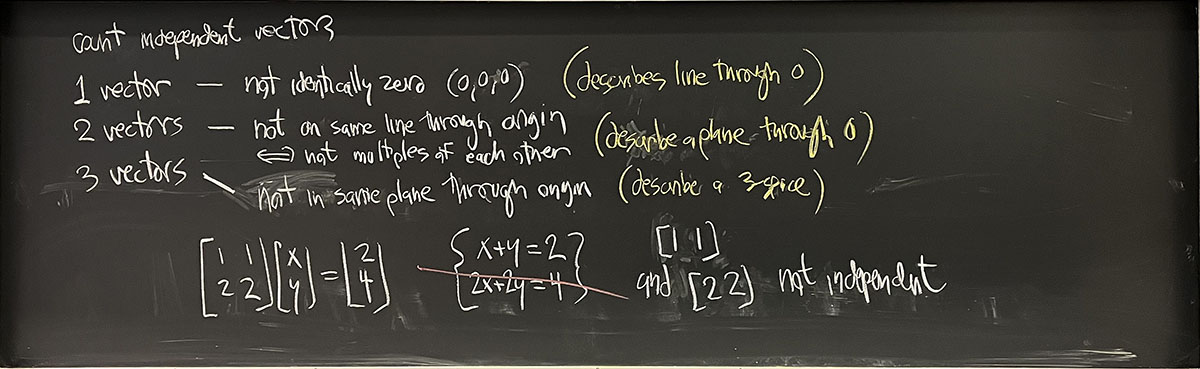 count independent vectors
1 vector — not identically zero (0,0,0) (describes line through 0)
2 vectors — not on same line through origin (describe a plane through 0)
⇔ not multiples of each other
3 vectors — not in same plane through origin (describe a 3 space)
[1 1; 2 2] [x; y] = [2; 4] { x+y=2 } [1 1]
{ 2x+2y=4 } and [2 2] not independent